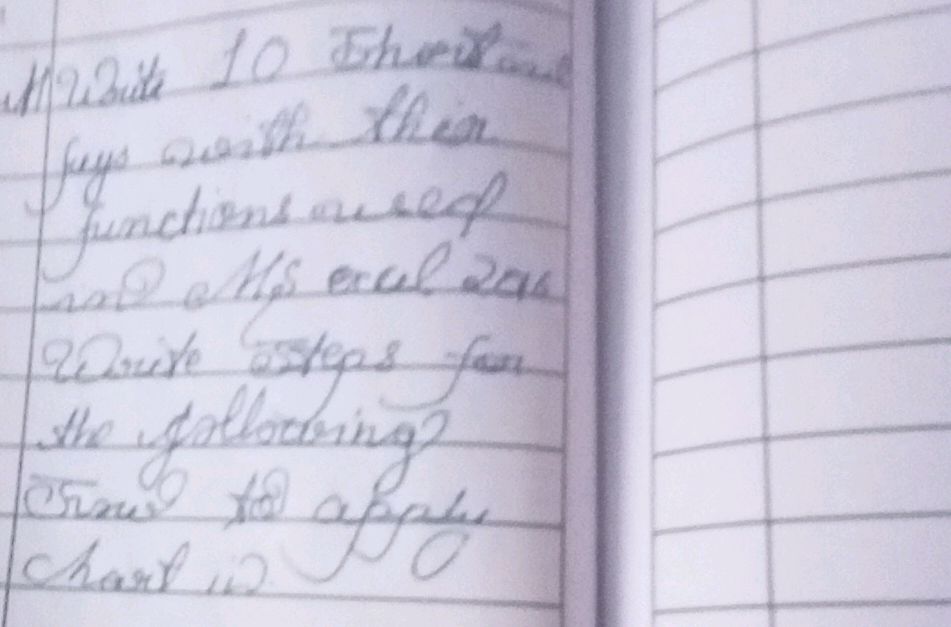 Write 10 Short cut
keys with their
functions used
in MS excel 2016
Write steps for
the following?
How to apply
chart in